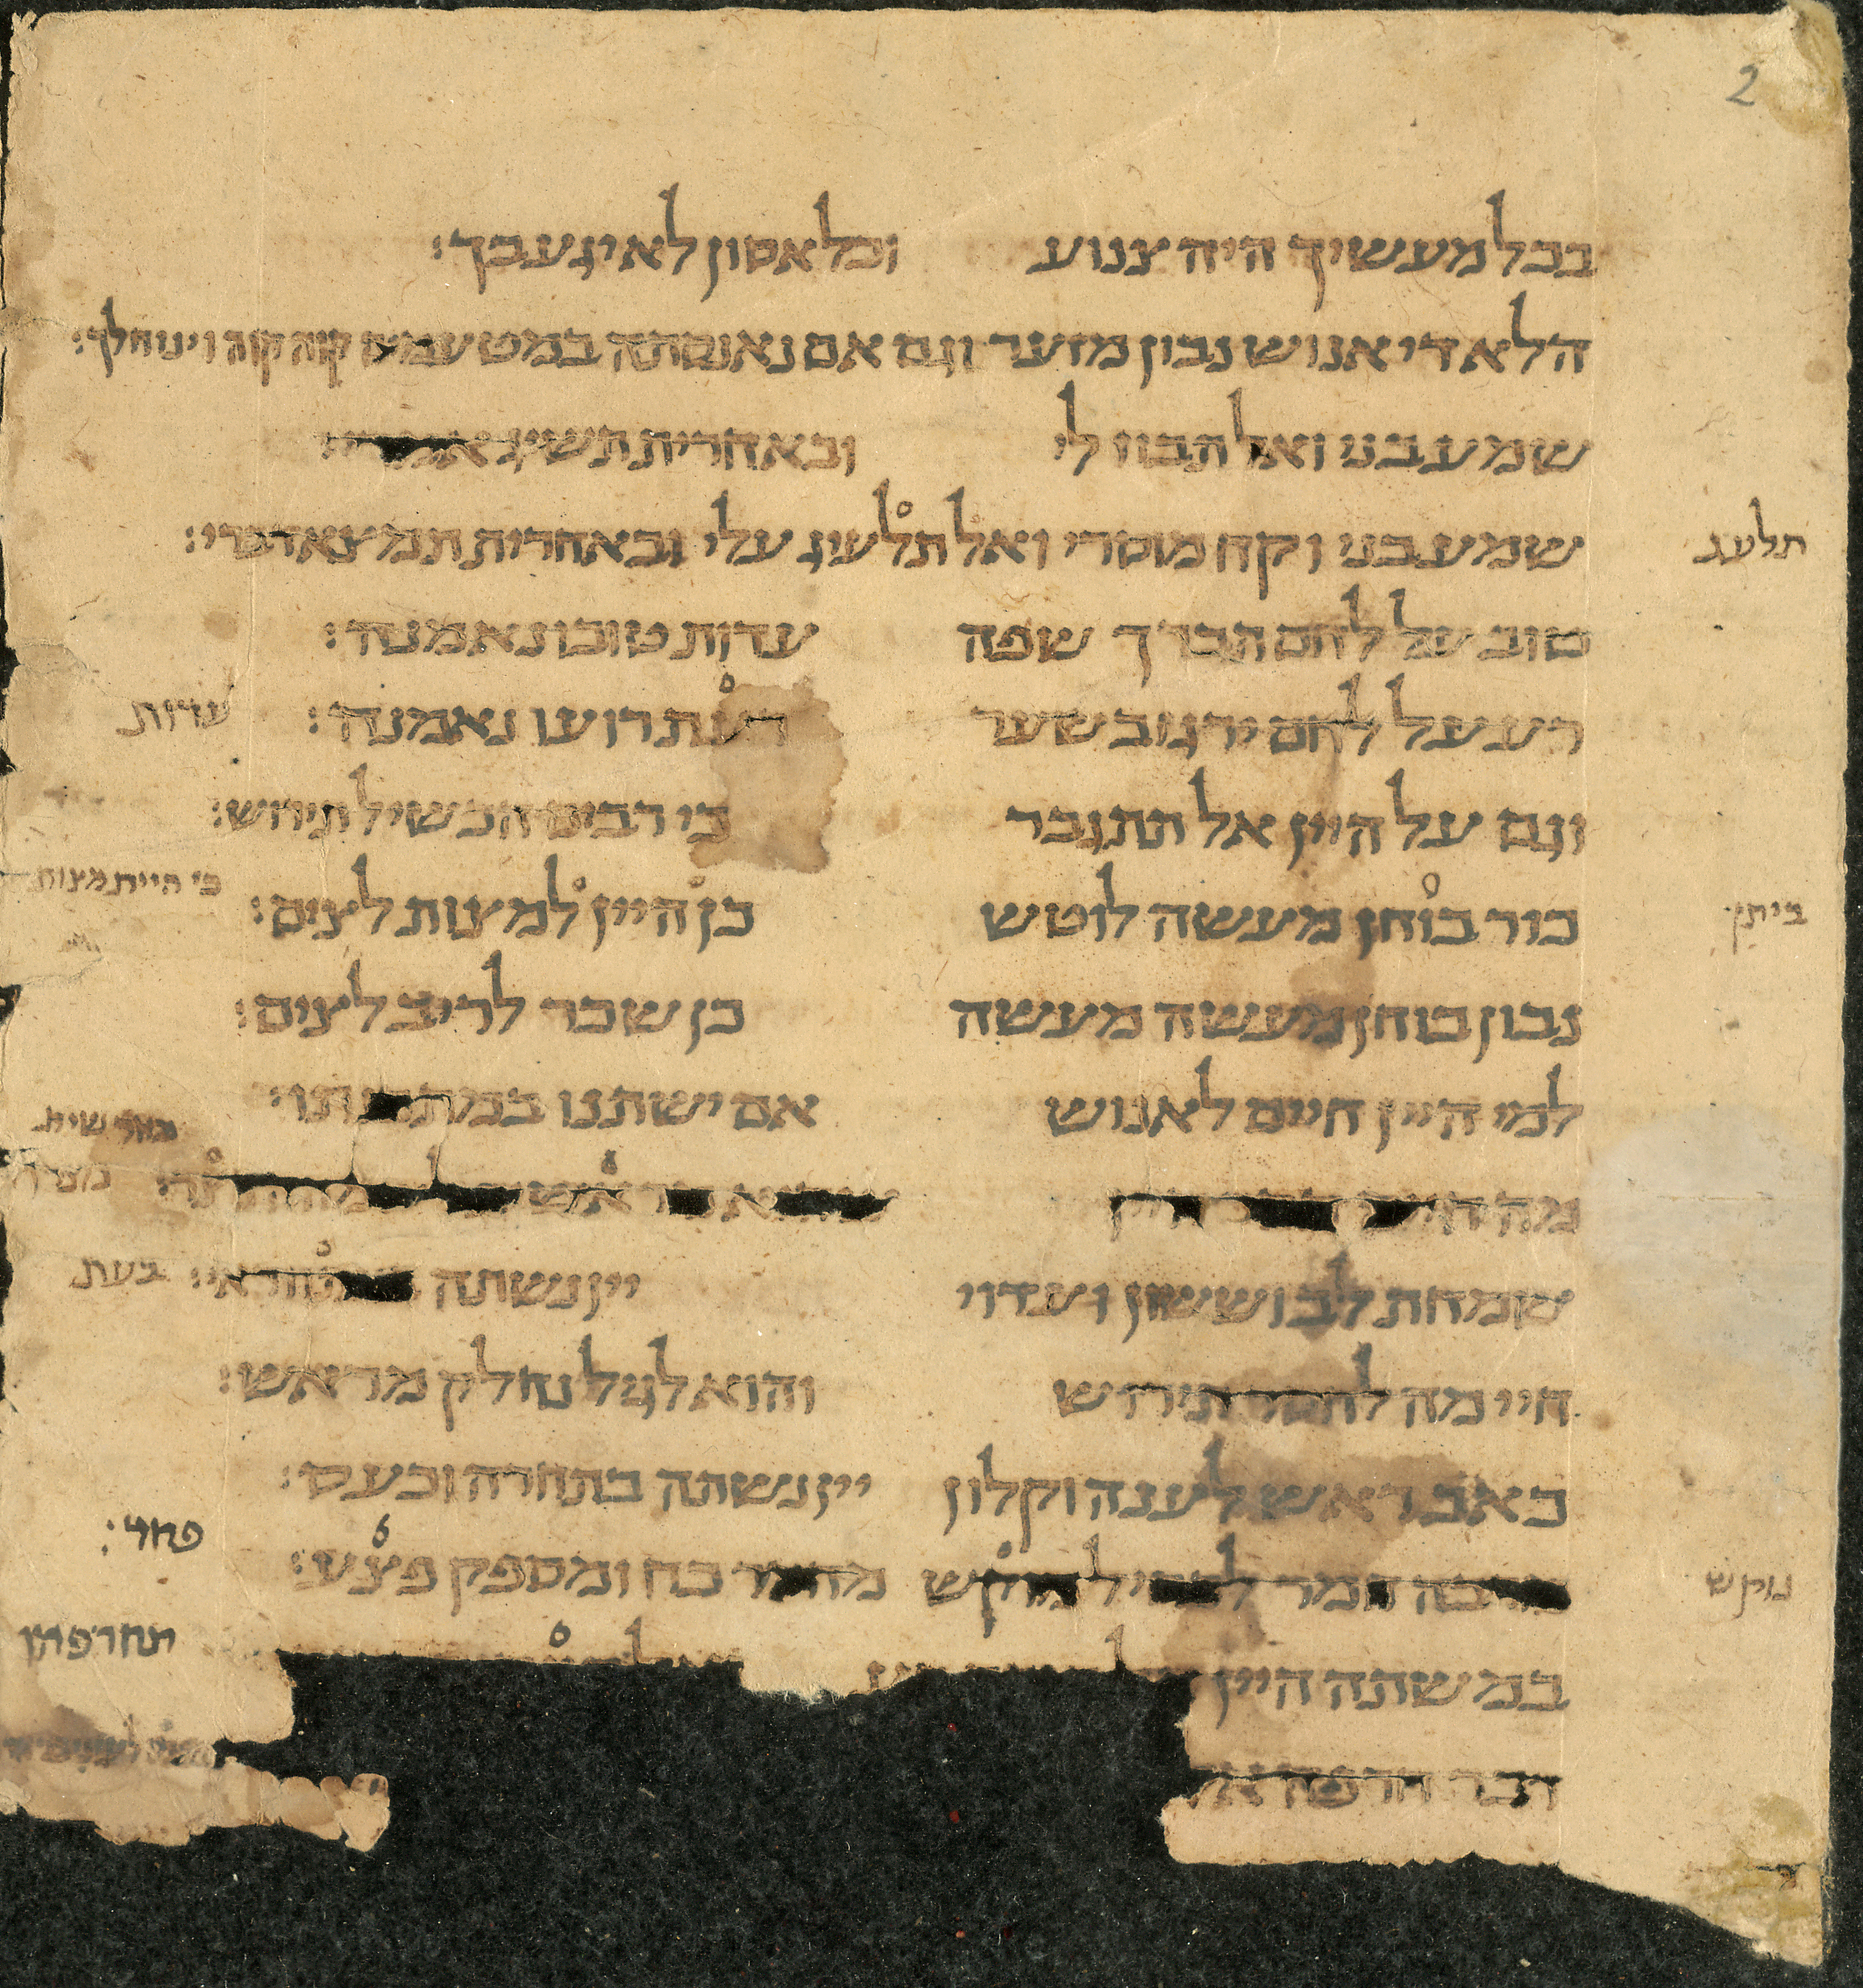 2
בכל מעשיך היה צנוע וכל אסון לא יגע בך׃
הלא די אנוש נבון מזער וגם אם נאנסתה במטעמים קוה קוה וינוח לך׃
שמע בני ואל תבוז לי ובאחרית תשיג
שמע בני וקח מוסרי ואל תלעיג עלי ובאחרית תמצא דברי׃
תלעג
טוב על לחם תברך שפה עדות טובו נאמנה׃
רע על לחם ירגז בשער דעת רועו נאמנה׃
עדות
וגם על היין אל תתגבר כי רבים הכשיל תירוש׃
כור בוחן מעשה לוטש כן היין למצות לצים׃
כי היית מצות
נבון בוחן מעשה מעשה כן שכר לריב לצים׃
למי היין חיים לאנוש אם ישתנו במתכנתו׃
מה
שמחת לב וששון ועדוי יין נשתה
בעת
חיי מה לחסר תירוש והוא לגיל נחלק מראש׃
כאב ראש לענה וקלון יין נשתה בתחרה וכעס׃
מרבה חמר לכסיל מוקש מחסר כח ומספק פצע׃
נוקש
במשתה היין
דבר חרפה אל